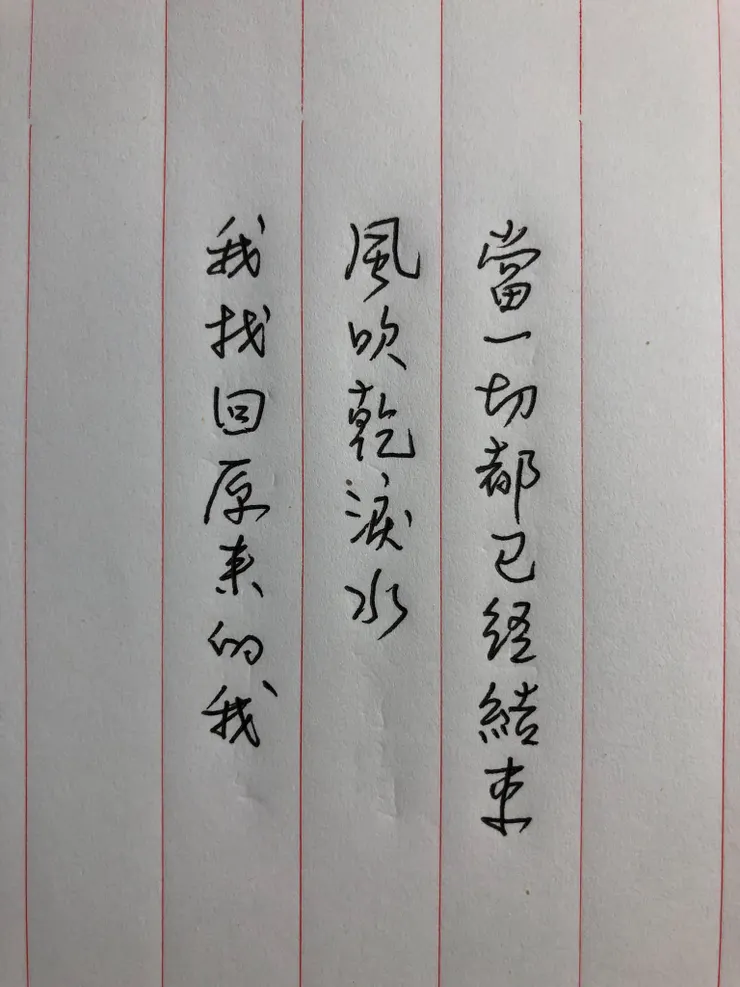 當一切都已經結束
風吹乾淚水
我找回原來的我